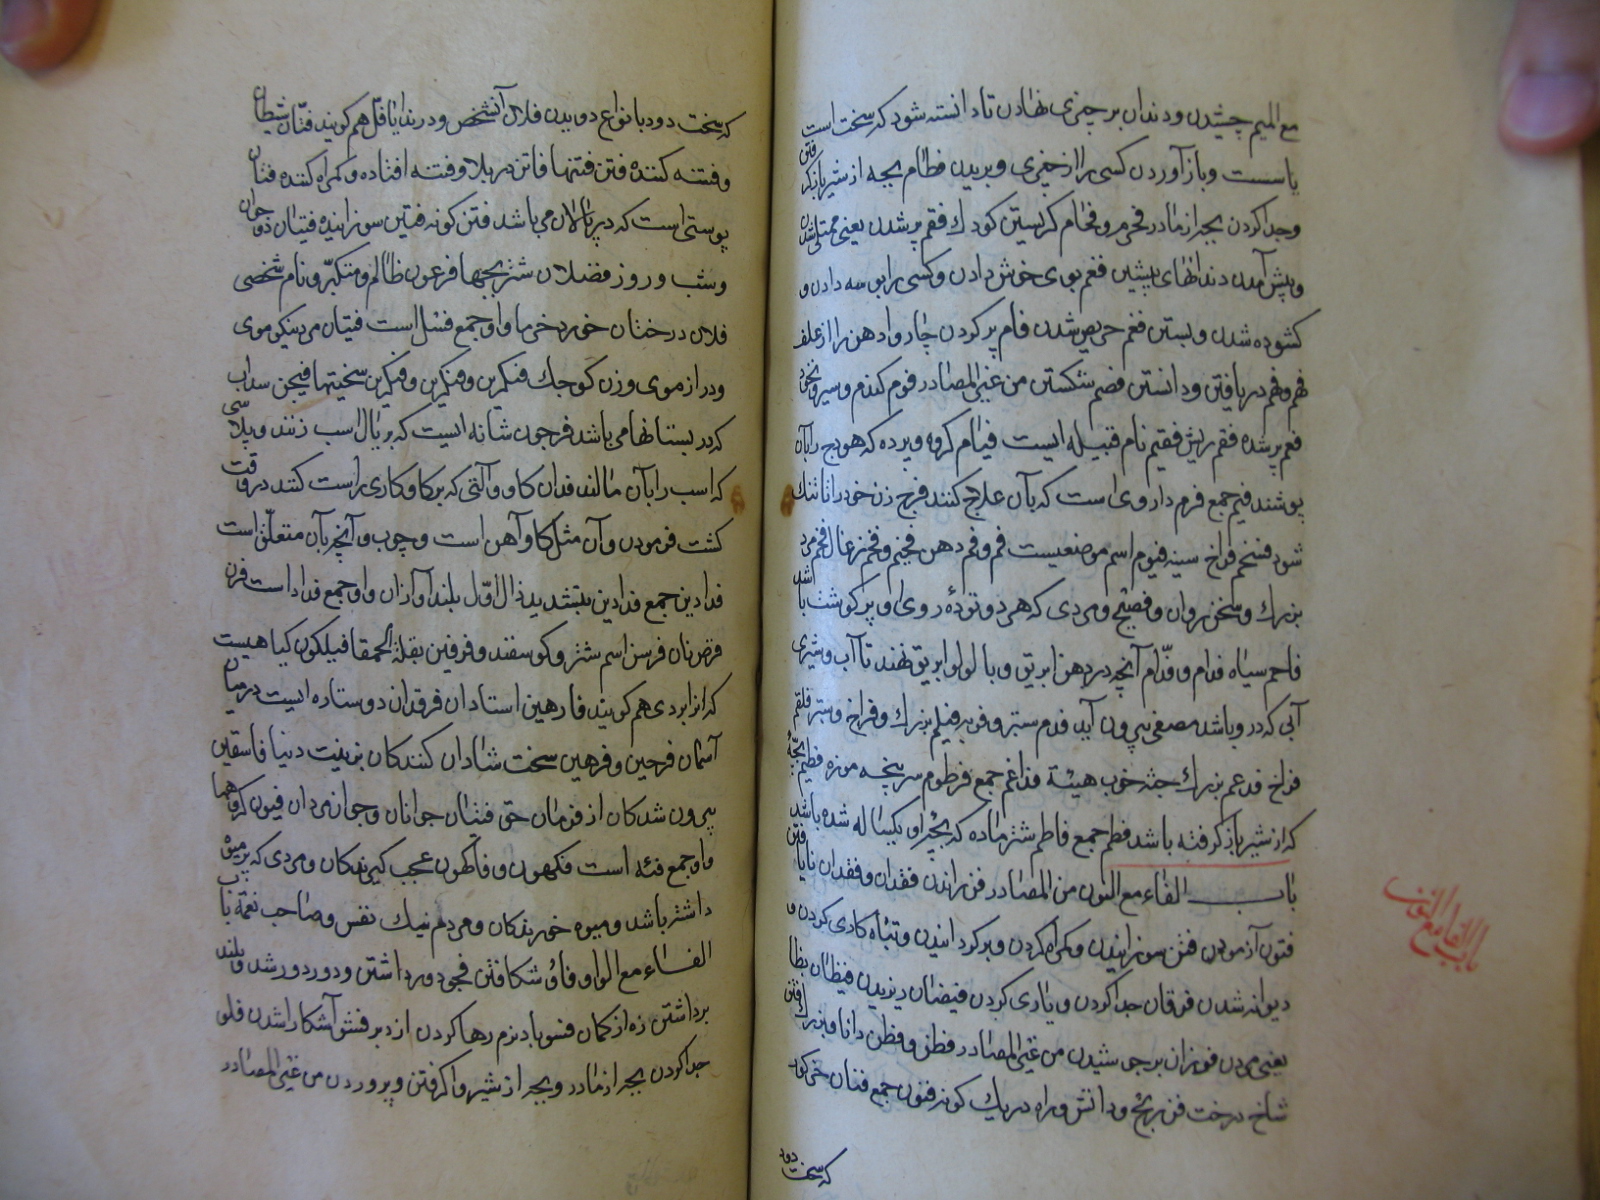 مع المیم چشیدن و دندان بر چیزی نهادن تا دانسته شود که سخت است
یا سست و باز آوردن کسی را از چیزی و بریدن فطام بچه از شیر باز کر
وجدا کردن بچه از مادر فحم و فحام گریستن کودک فقم پر شدن یعنی ممتلی شدن
و پیش آمدن دندانهای پیشین فغم بوی خوش دادن و کسی را بوسه دادن و
کشوده شدن و بستن فغم حریص شدن فام پر کردن چاروا دهن را از علف
فهم و فهم دریافتن و دانستن فصم شکستن من غیر المصادر فوم کندم و سیر و نخود
فعم پر شده فقم ریش فقیم نام قبیله ایست فیام کروه و پرده که هودج را بآن
پوشند فیم جمع فرم داروی است که بآن علاج کنند فرج زن خود را تا تنک
شود فسحم فراخ سینه فیوم اسم موضعیست فم و فم دهن فحیم و فحم زغال فخم مرد
بزرک و سخن روان و فصیح و مردی که هر دو توده روی او پر کوشت باشد
فاحم سیاه فدام و فدّام آنچه در دهن ابریق و با لولو ابریق نهند تا آب و شیری
آبی که درو باشد مصفی بیرون آید فدم ستبر و فربه فیلم بزرک و فراخ و ستبر فلقم
فراخ فدعم بزرک جثه خوب هیئة فداغم جمع فرطوم سر پنجه موزه فطیم بچهٔ
که از شیر باز کرفته باشد فطم جمع فاطم شتر ماده که بچهٔ او یکساله شده باشد
باب الفاء مع النون من المصادر فن راندن فقدان و فقدان نایافتن
فتون آزمودن فتن سوزانیدن و کمراه کردن و برکردانیدن و تباه کاری کردن و
دیوانه شدن فرقان جدا کردن و یاری کردن فیضان دیزیدن فیظان بظا
یعنی مردن فوران بر جوشیدن من غیر المصادر فطن و فطن دانا و بزرک افنن
شاخ درخت فن رنج و دانش و راه در یک کونه فنون جمع فنان خر کور
که سخت دود
باب الفاء مع النون
که سخت دود با نواع دویدن فلان آن شخص و در ندا یا فل هم کویند فتان شیطان
و فتنه کننده فتن فتنها فاتن در بلا و فتنه افتاده و کمراه کننده فتان
پوستی است که در پالان می باشد فتن کونه فتین سوزانیده فتیان دو جوان
و شب و روز فضلان شتر بچها فرعون ظالم و متکبر و نام شخصی
فلان درختان خورد خرما و او جمع فسل است فتیان مرد نیکو موی
و دراز موی و زن کوچک فتکرین و فتکرین و فتکرین سختیها فیجن سداب
که در بستانها می باشد فرجون شانه ایست که بر یال اسب زنند و پلاسی
که اسب را بآن مالند فدان کاو و آلتی که بر کاو کاری راست کنند در وقت
کشت فرمودن و آن مثل کاو آهن است و چوب و آنچه بآن متعلق است
فدادین جمع فدادین بتشدید دال اول بلند آوازان و او جمع فداد است فرن
قرص نان فرسن اسم شتر و کوسفند و فرفین بقلة الحمقا فیلکون کیاهیست
که انرا بردی هم کویند فارهین استادان فرقدان دو ستاره ایست در میان
آسمان فرحین و فرهین سخت شادان کنندکان بزینت دنیا فاسقین
بیرون شدکان از فرمان حق فتیان جوانان و جوانمردان فیون کروهها
و او جمع فئه است فکهون و فاکهون عجب کیرندکان و مردی که پر میوه
داشته باشد و میوه خورندکان و مردم نیک نفس و صاحب نعمة باب
الفاء مع الواو فاو شکافتن فجو دور داشتن و دور دور شد و بلند
برداشتن زه از کمان فسو باد نرم رها کردن از دبر فشو آشکارا شدن فلو
جدا کردن بچه از مادر و بچه از شیر وا کرفتن و پروردن من غیر المصادر